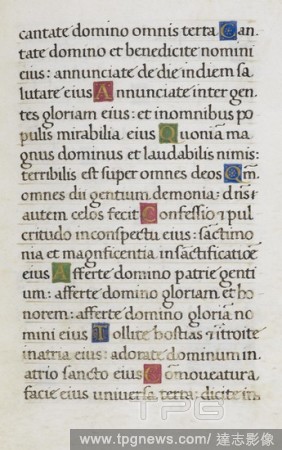 cantate domino omnis terra Can
tate domino et benedicite nomini
eius: annunciate de die in diem sa
lutare eius Annunciate inter gen
tes gloriam eius: et in omnibus po
pulis mirabilia eius Quonia ma
gnus dominus et laudabilis nimis:
terribilis est super omnes deos Qm̄
omnes dii gentium demonia: dñs
autem celos fecit Confessio ⁊ pul
critudo in conspectu eius: sactimo
nia et magnificentia in sactificatiōe
eius Afferte domino patrie genti
um: afferte domino gloriam et ho
norem: afferte domino gloriā no
mini eius Tollite hostias ⁊ ītroite
in atria eius: adorate dominum in
atrio sancto eius Cōmoveatur a
facie eius universa terra: dicite in
TPG
www.tpgnews.com / 達志影像